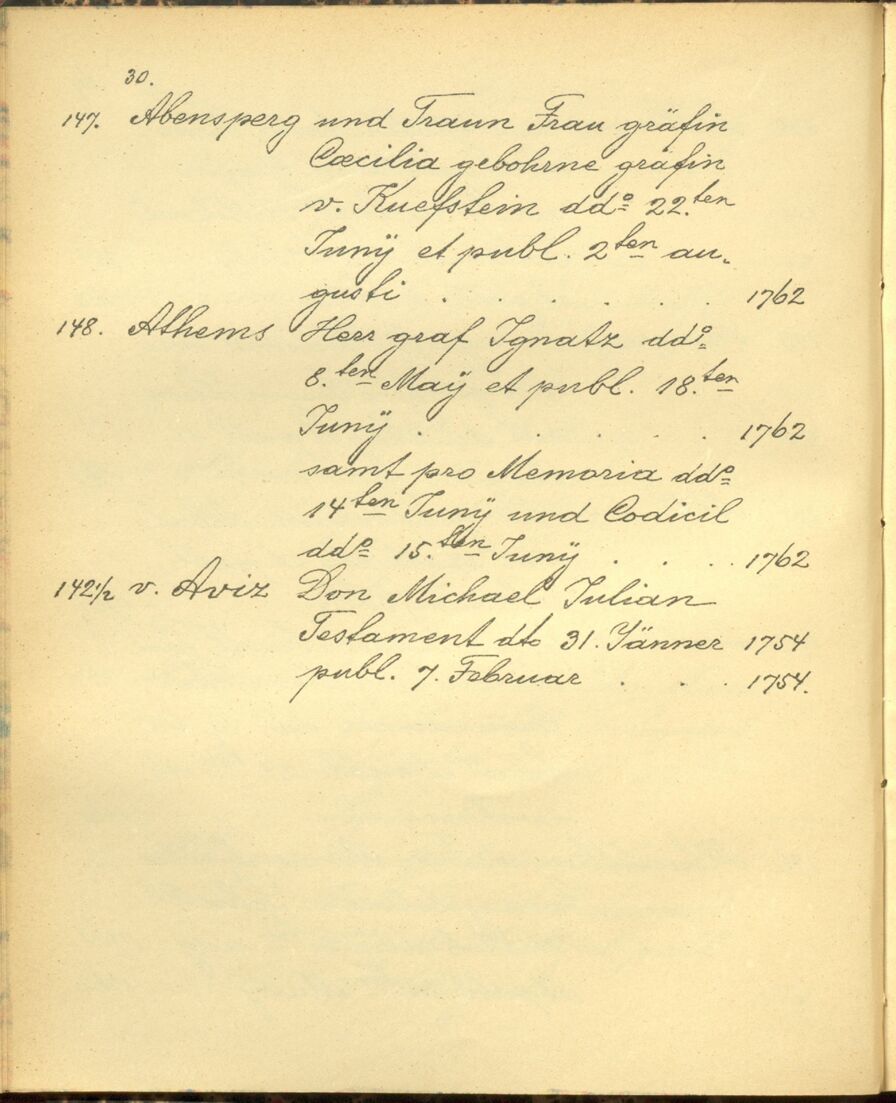 30.
147. Abensperg und Traun Frau gräfin
Cæcilia gebohrne gräfin
v. Kuefstein dd° 22.ten
Junÿ et publ. 2ten au-
gusti . . . . . . 1762
148. Athems Herr graf Ignatz dd°
8.ten Maÿ et publ. 18.ten
Junÿ . . . . . 1762
samt pro Memoria dd°
14ten Junÿ und Codicil
dd° 15.ten Junÿ . . . . 1762
142½ v. Aviz Don Michael Julian
Testament dto 31. Jänner 1754
publ. 7. Februar . . . 1754.